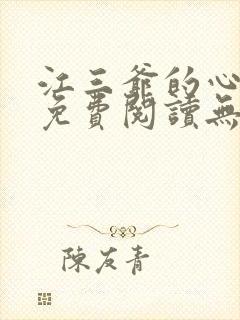 江三爺的心
免費閱讀無
陳友青